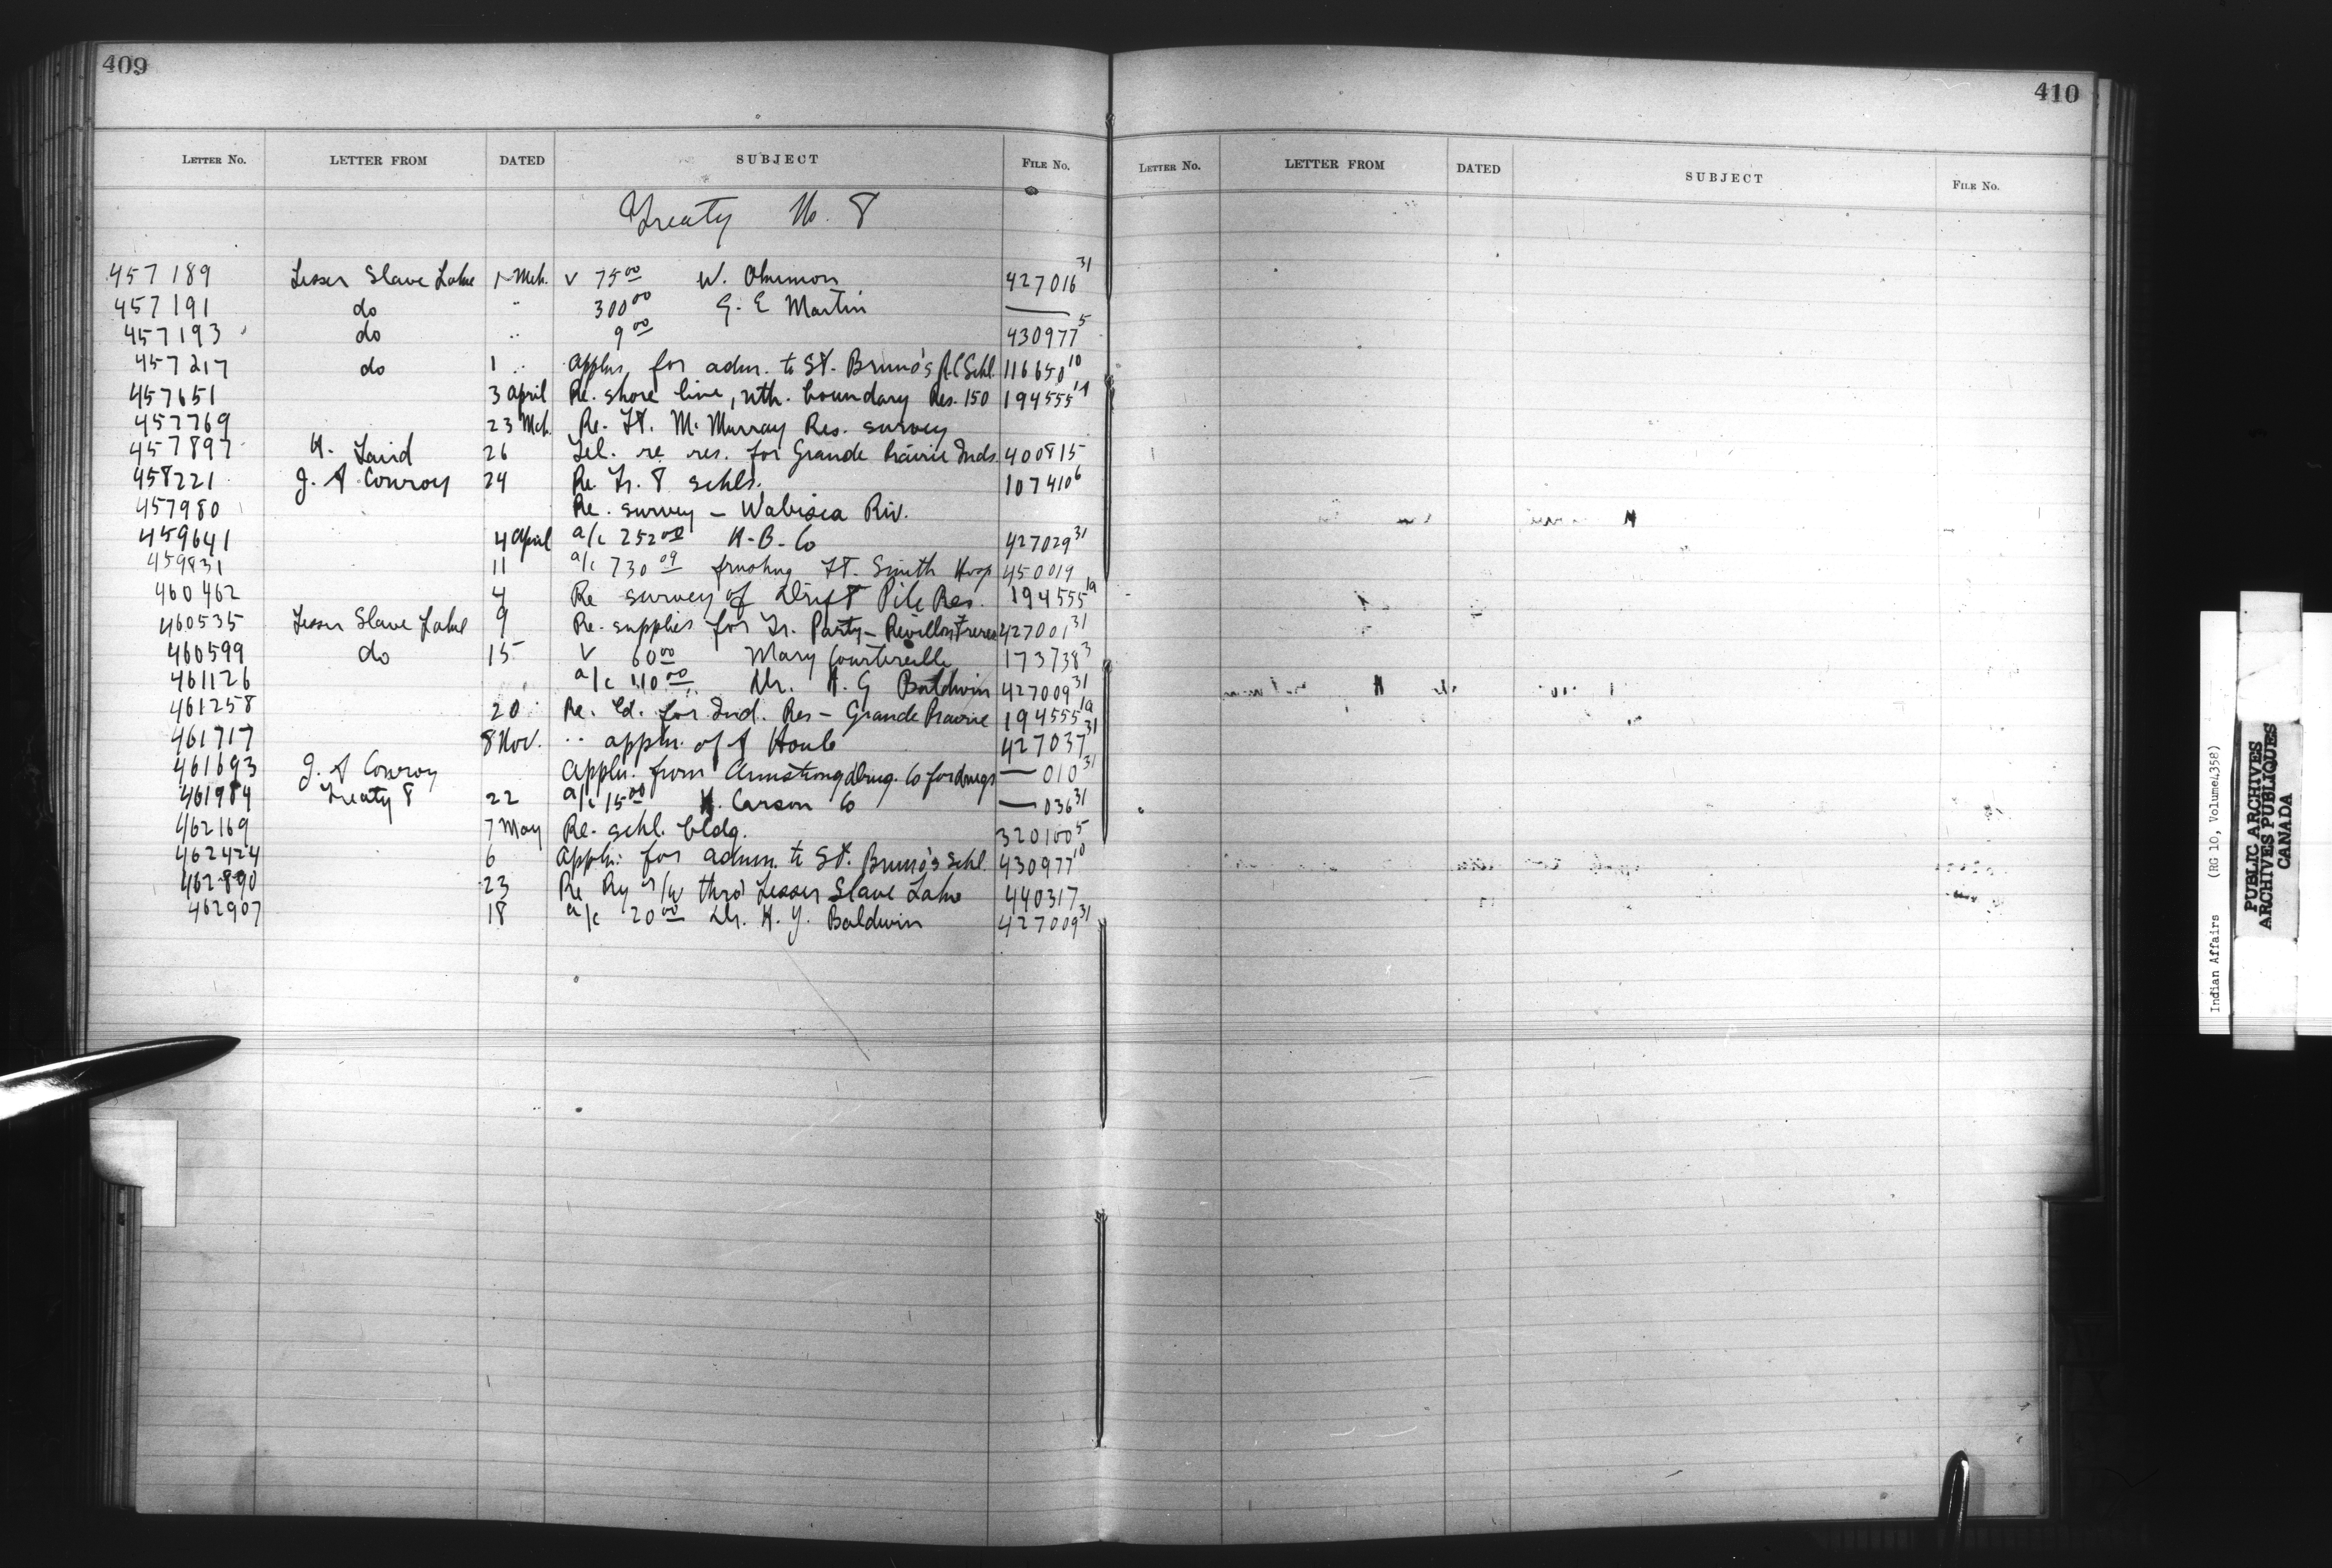 409
LETTER No. LETTER FROM DATED SUBJECT FILE No.
Treaty No. 8
457189 Lesser Slave Lake 1 Mch. v 75 00 W. 427016 31
457191 do " 300 00 G. E Martin —
457193 do " 9 00 430977 5
457217 do 1 " Appln. for adm. to St. Bruno's R.C Schl. 116650 10
457651 3 April Re. shore line, nth. boundary Res. 150 194555 1A
457769 23 Mch. Re. Ft. McMurray Res. survey
457897 H. Laird 26 Tel. re res. for Grande Prairie Inds. 400815
458221 J. A Conroy 24 Re Tr. 8 schls. 107410 6
457980 Re. survey — Wabisca Riv.
459641 4 April a/c 252 00 H. B. Co 427029 31
459831 11 a/c 730 09 Ft. Smith Hosp 450019
460462 4 Re survey of Drift Pile Res. 194555 1a
460535 Lesser Slave Lake 9 Re. supplies for Tr. Party — Revillon Freres 427001 31
460599 do 15 v 60 00 Mary Courtereille 173738 3
461126 a/c 110 00 Dr. H. G Baldwin 427009 31
461258 20 Re. ld. for Ind. Res — Grande Prairie 194555 1a
461717 8 Nov. " appln. of A Houle 427037 31
461693 J. A Conroy Appln. from Armstrong Drug. Co for drugs — 010 31
461984 Treaty 8 22 a/c 15 00 H. Carson Co — 036 31
462169 7 May Re. schl. bldg. 320100 5
462424 6 Appln. for admn. to St. Bruno's schl. 430977 10
462890 23 Re Ry r/w thro' Lesser Slave Lake 440317
462907 18 a/c 20 00 Dr. H. Y. Baldwin 427009 31
410
LETTER No. LETTER FROM DATED SUBJECT FILE No.
Indian Affairs (RG 10, Volume 4358)
PUBLIC ARCHIVES
ARCHIVES PUBLIQUES
CANADA